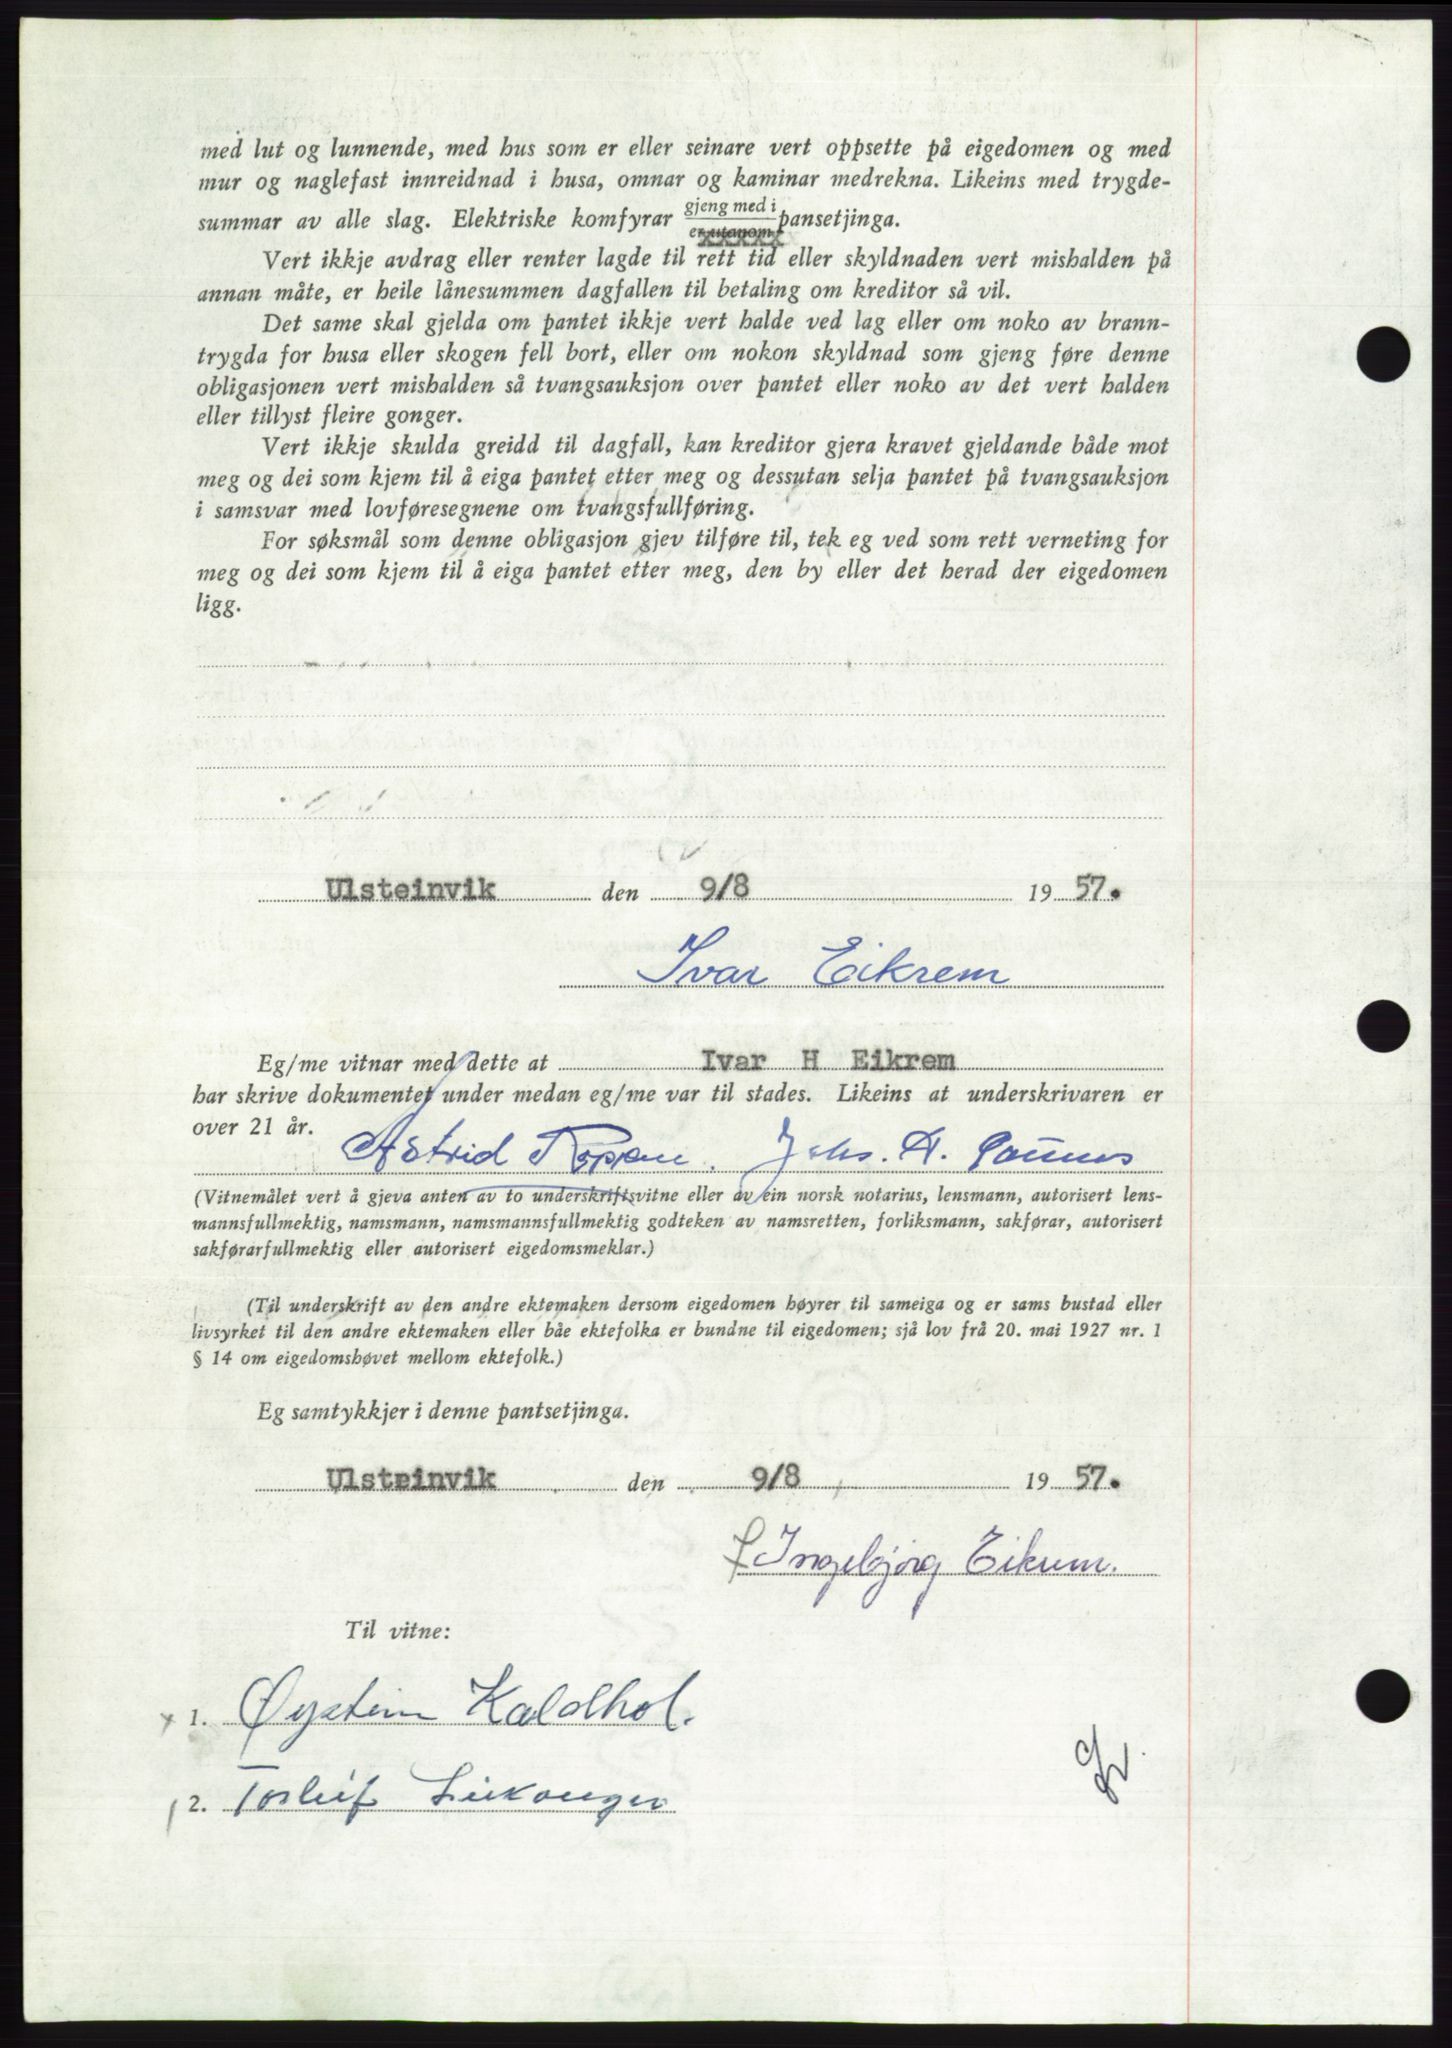 med lut og lunnende, med hus som er eller seinare vert oppsette på eigedomen og med
mur og naglefast innreidnad i husa, omnar og kaminar medrekna. Likeins med trygde-
summar av alle slag. Elektriske komfyrar gjeng med i / er utanom pansetjinga.
Vert ikkje avdrag eller renter lagde til rett tid eller skyldnaden vert mishalden på
annan måte, er heile lånesummen dagfallen til betaling om kreditor så vil.
Det same skal gjelda om pantet ikkje vert halde ved lag eller om noko av brann-
trygda for husa eller skogen fell bort, eller om nokon skyldnad som gjeng føre denne
obligasjonen vert mishalden så tvangsauksjon over pantet eller noko av det vert halden
eller tillyst fleire gonger.
Vert ikkje skulda greidd til dagfall, kan kreditor gjera kravet gjeldande både mot
meg og dei som kjem til å eiga pantet etter meg og dessutan selja pantet på tvangsauksjon
i samsvar med lovføresegnene om tvangsfullføring.
For søksmål som denne obligasjon gjev tilføre til, tek eg ved som rett verneting for
meg og dei som kjem til å eiga pantet etter meg, den by eller det herad der eigedomen
ligg.
Ulsteinvik den 9/8 19 57.
Ivar Eikrem
Eg/me vitnar med dette at Ivar H Eikrem
har skrive dokumentet under medan eg/me var til stades. Likeins at underskrivaren er
over 21 år.
Astrid Johs. A.
(Vitnemålet vert å gjeva anten av to underskriftsvitne eller av ein norsk notarius, lensmann, autorisert lens-
mannsfullmektig, namsmann, namsmannsfullmektig godteken av namsretten, forliksmann, sakførar, autorisert
sakførarfullmektig eller autorisert eigedomsmeklar.)
(Til underskrift av den andre ektemaken dersom eigedomen høyrer til sameiga og er sams bustad eller
livsyrket til den andre ektemaken eller båe ektefolka er bundne til eigedomen; sjå lov frå 20. mai 1927 nr. 1
§ 14 om eigedomshøvet mellom ektefolk.)
Eg samtykkjer i denne pantsetjinga.
Ulsteinvik den 9/8 19 57.
Ingebjørg Eikrem.
Til vitne:
1. Øystein Kaldhol.
2. Torleif Leikanger